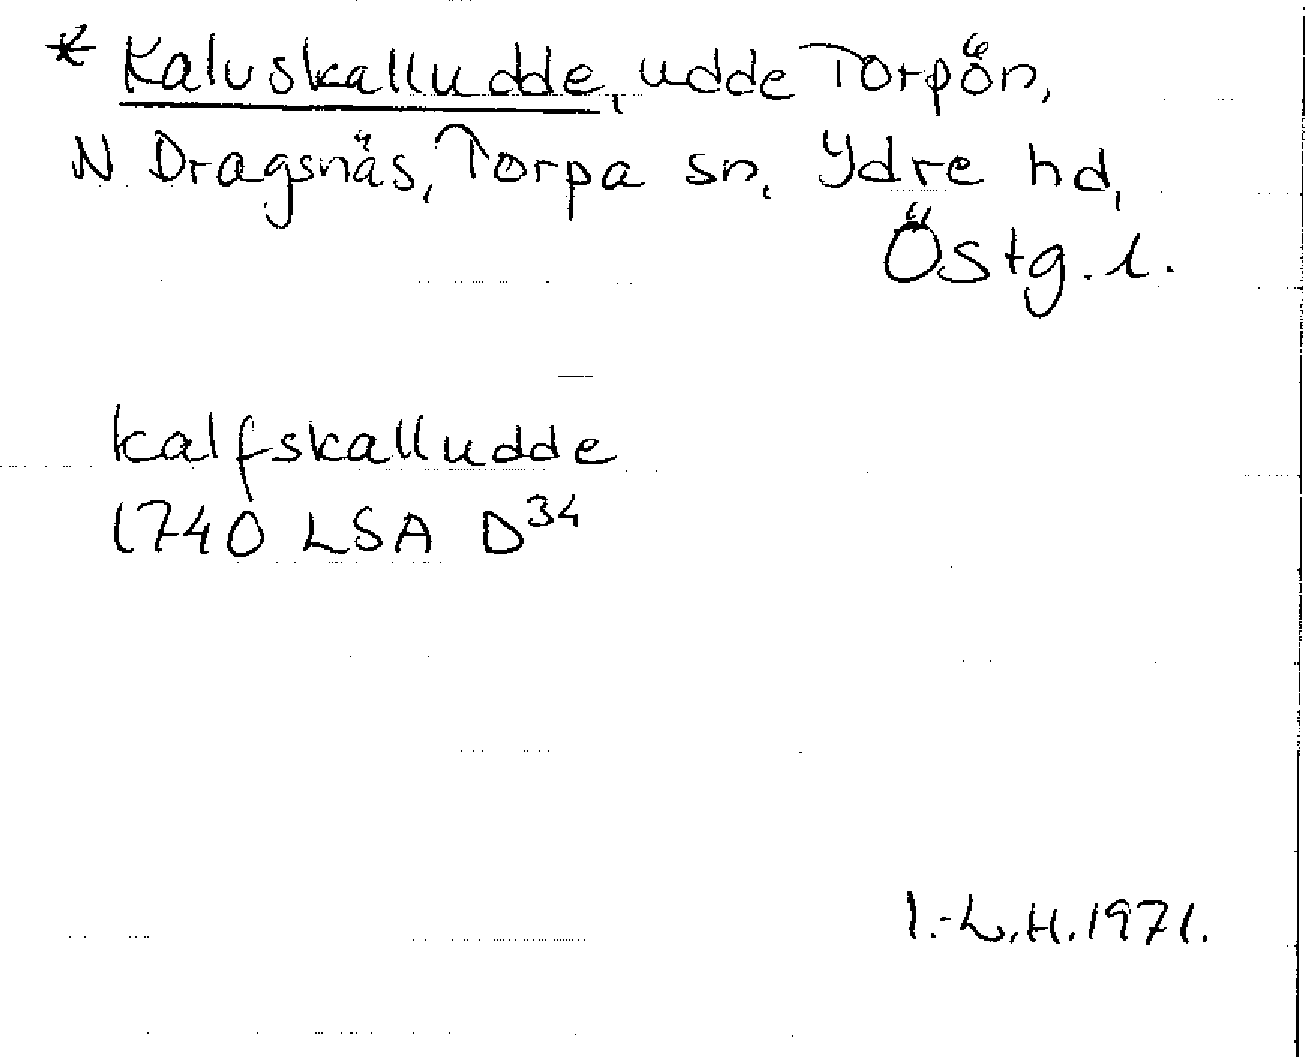 * Kalvskalludde, udde Torpön,
N Dragsnäs, Torpa sn, Ydre hd,
Östg. l.
kalfskalludde
1740 LSA D³⁴
I.-L.H. 1971.